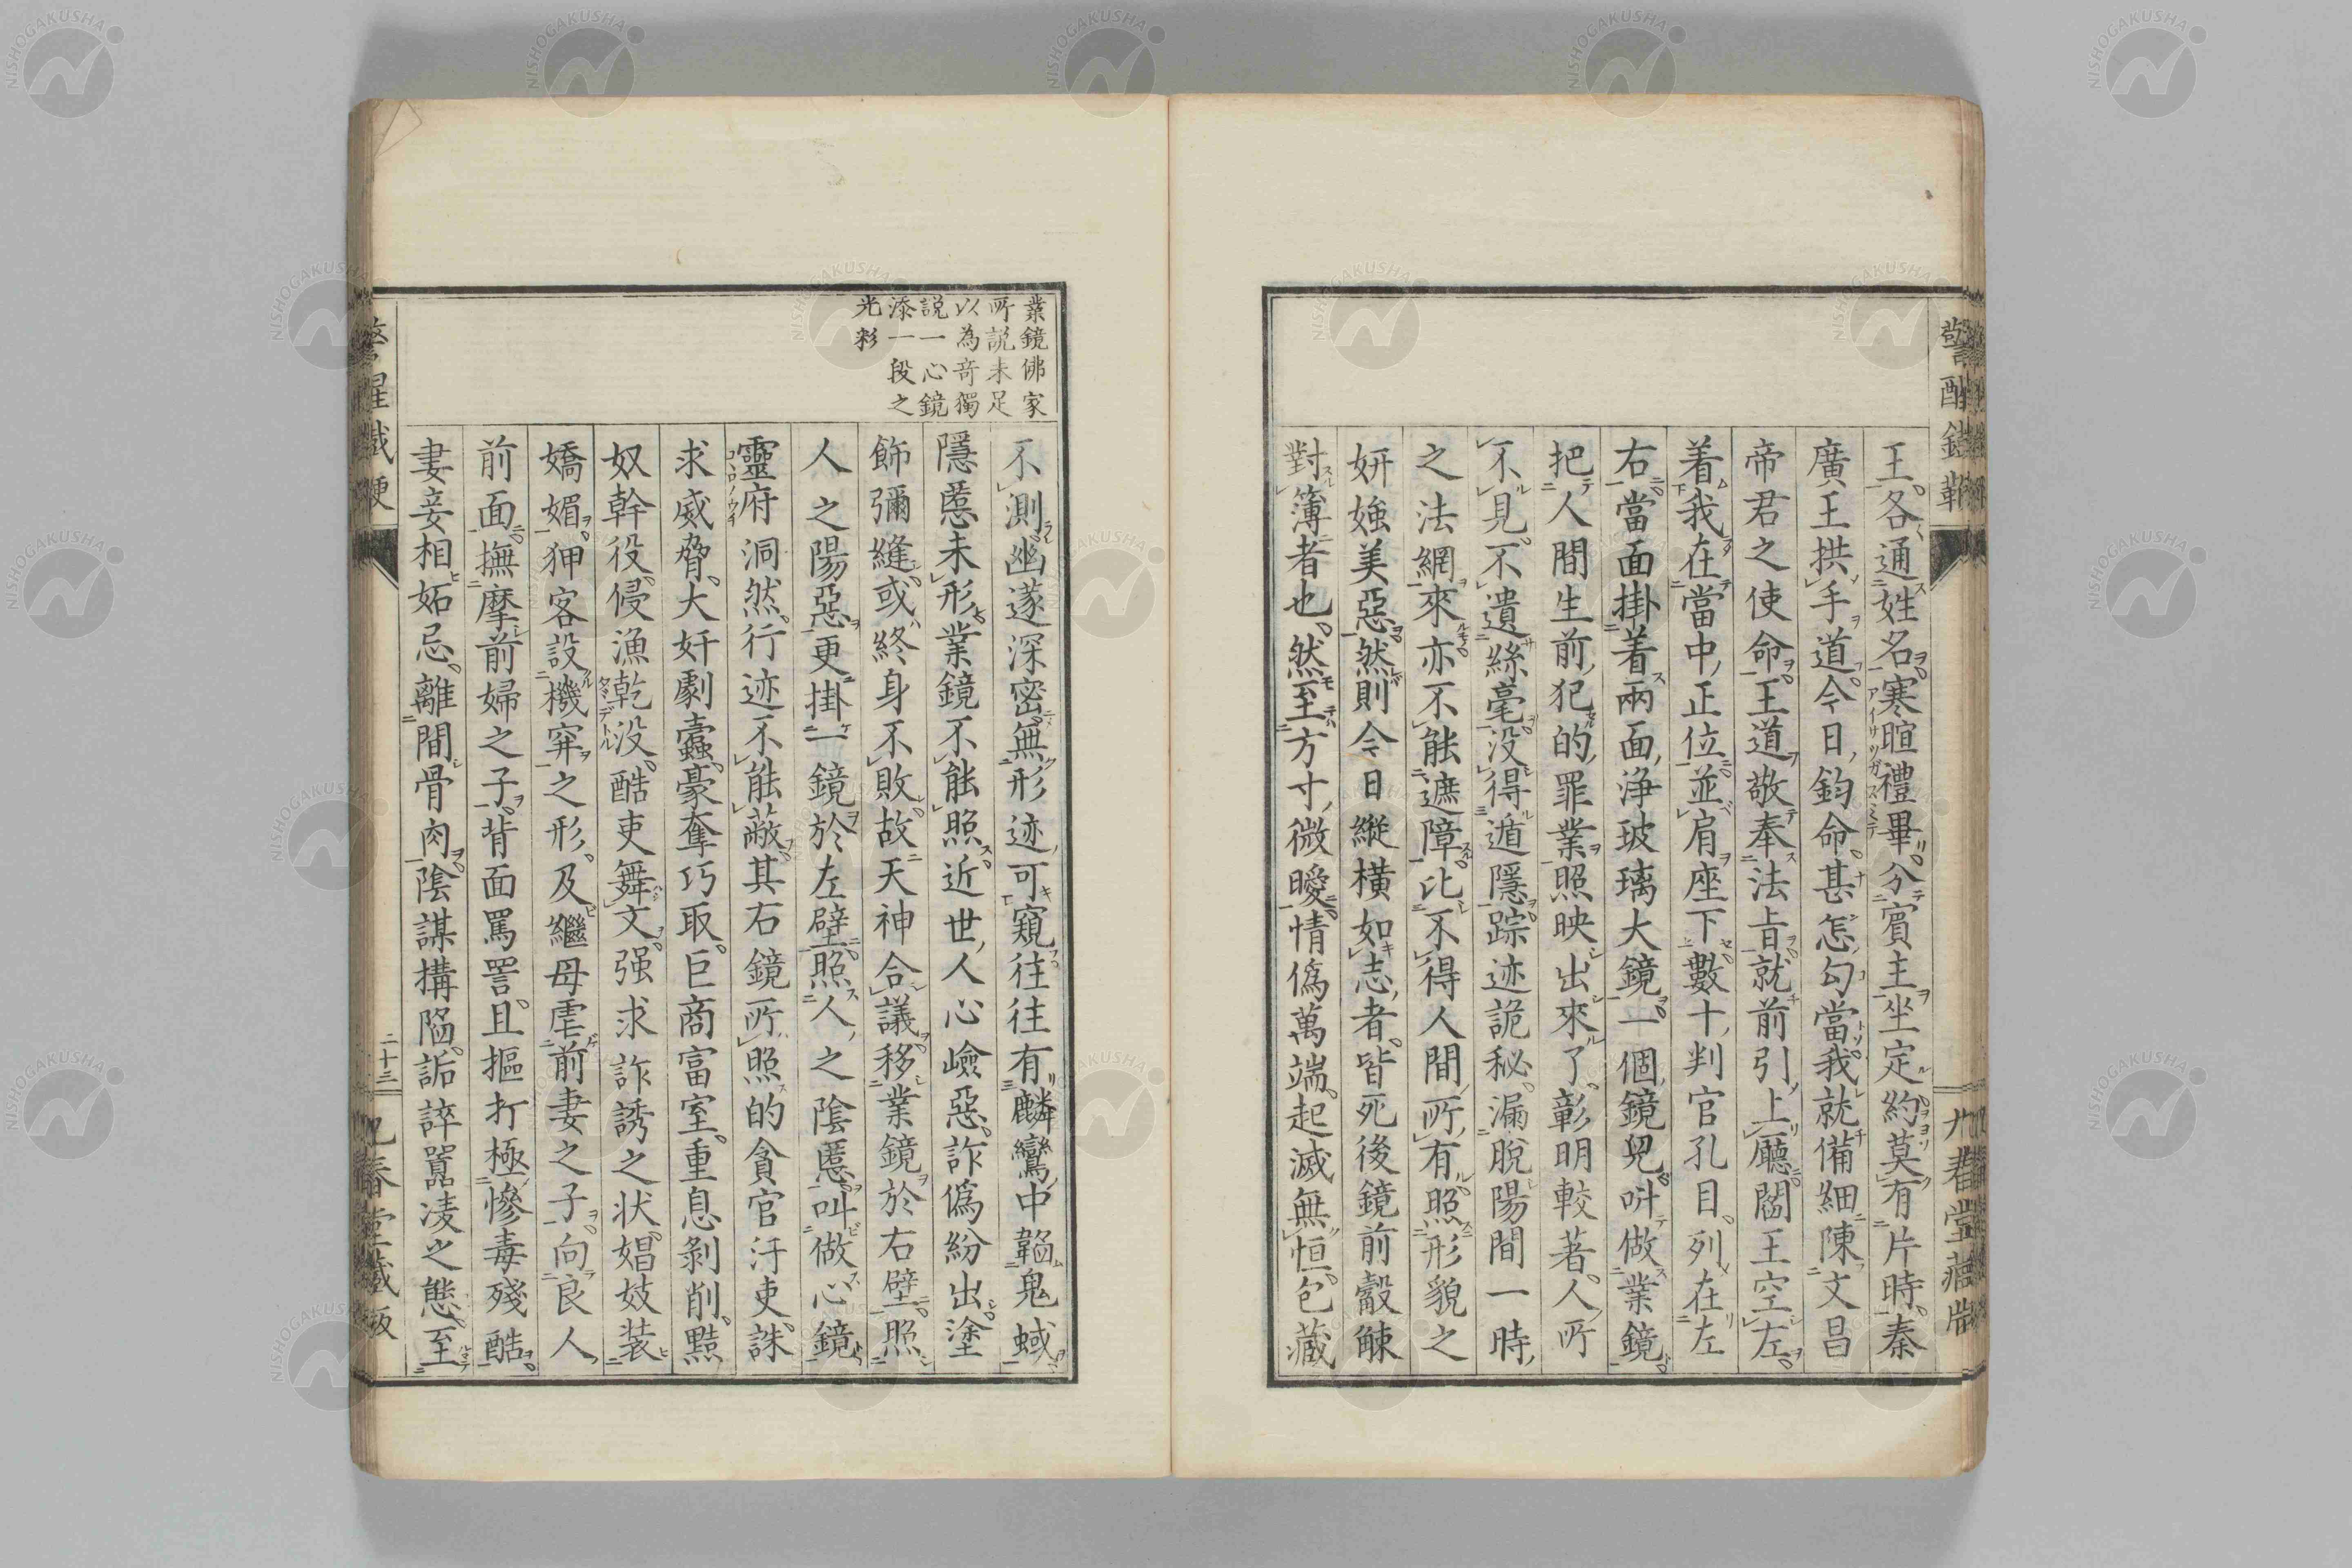 王各通姓名寒暄禮畢分賓主坐定約莫有片時秦
廣王拱手道今日鈞命甚怎勾當我就備細陳文昌
帝君之使命王道敬奉法旨就前引上廳閻王空左
着我在當中正位並肩座下數十判官孔目列在左
右當面掛着兩面淨玻璃大鏡一個鏡兒叫做業鏡
把人間生前犯的罪業照映出來了彰明較著人所
不見不遺絲毫没得遁隱踪迹詭秘漏脫陽間一時
之法網來亦不能遮障比不得人間所有照形貌之
妍媸美惡然則今日縱橫如志者皆死後鏡前觳觫
對簿者也然至方寸微曖情僞萬端起滅無恒包藏
業鏡佛家
所説未足
以為奇獨
説一心鏡
添一段之
光彩
不測幽邃深密無形迹可窺往往有麟鸞中韜鬼蜮
隱慝未形業鏡不能照近世人心嶮惡詐僞紛出塗
飾彌縫或終身不敗故天神合議移業鏡於右壁照
人之陽惡更掛一鏡於左壁照人之陰慝叫做心鏡
靈府洞然行迹不能蔽其右鏡所照的貪官汙吏誅
求威脅大奸劇蠹豪奪巧取巨商富室重息剝削黠
奴幹役侵漁乾没酷吏舞文强求詐誘之状娼妓装
嬌媚狎客設機穽之形及繼母虐前妻之子向良人
前面撫摩前婦之子背面罵詈且摳打極慘毒殘酷
妻妾相妬忌離間骨肉陰謀構陷詬誶嚚凌之態至
二十三